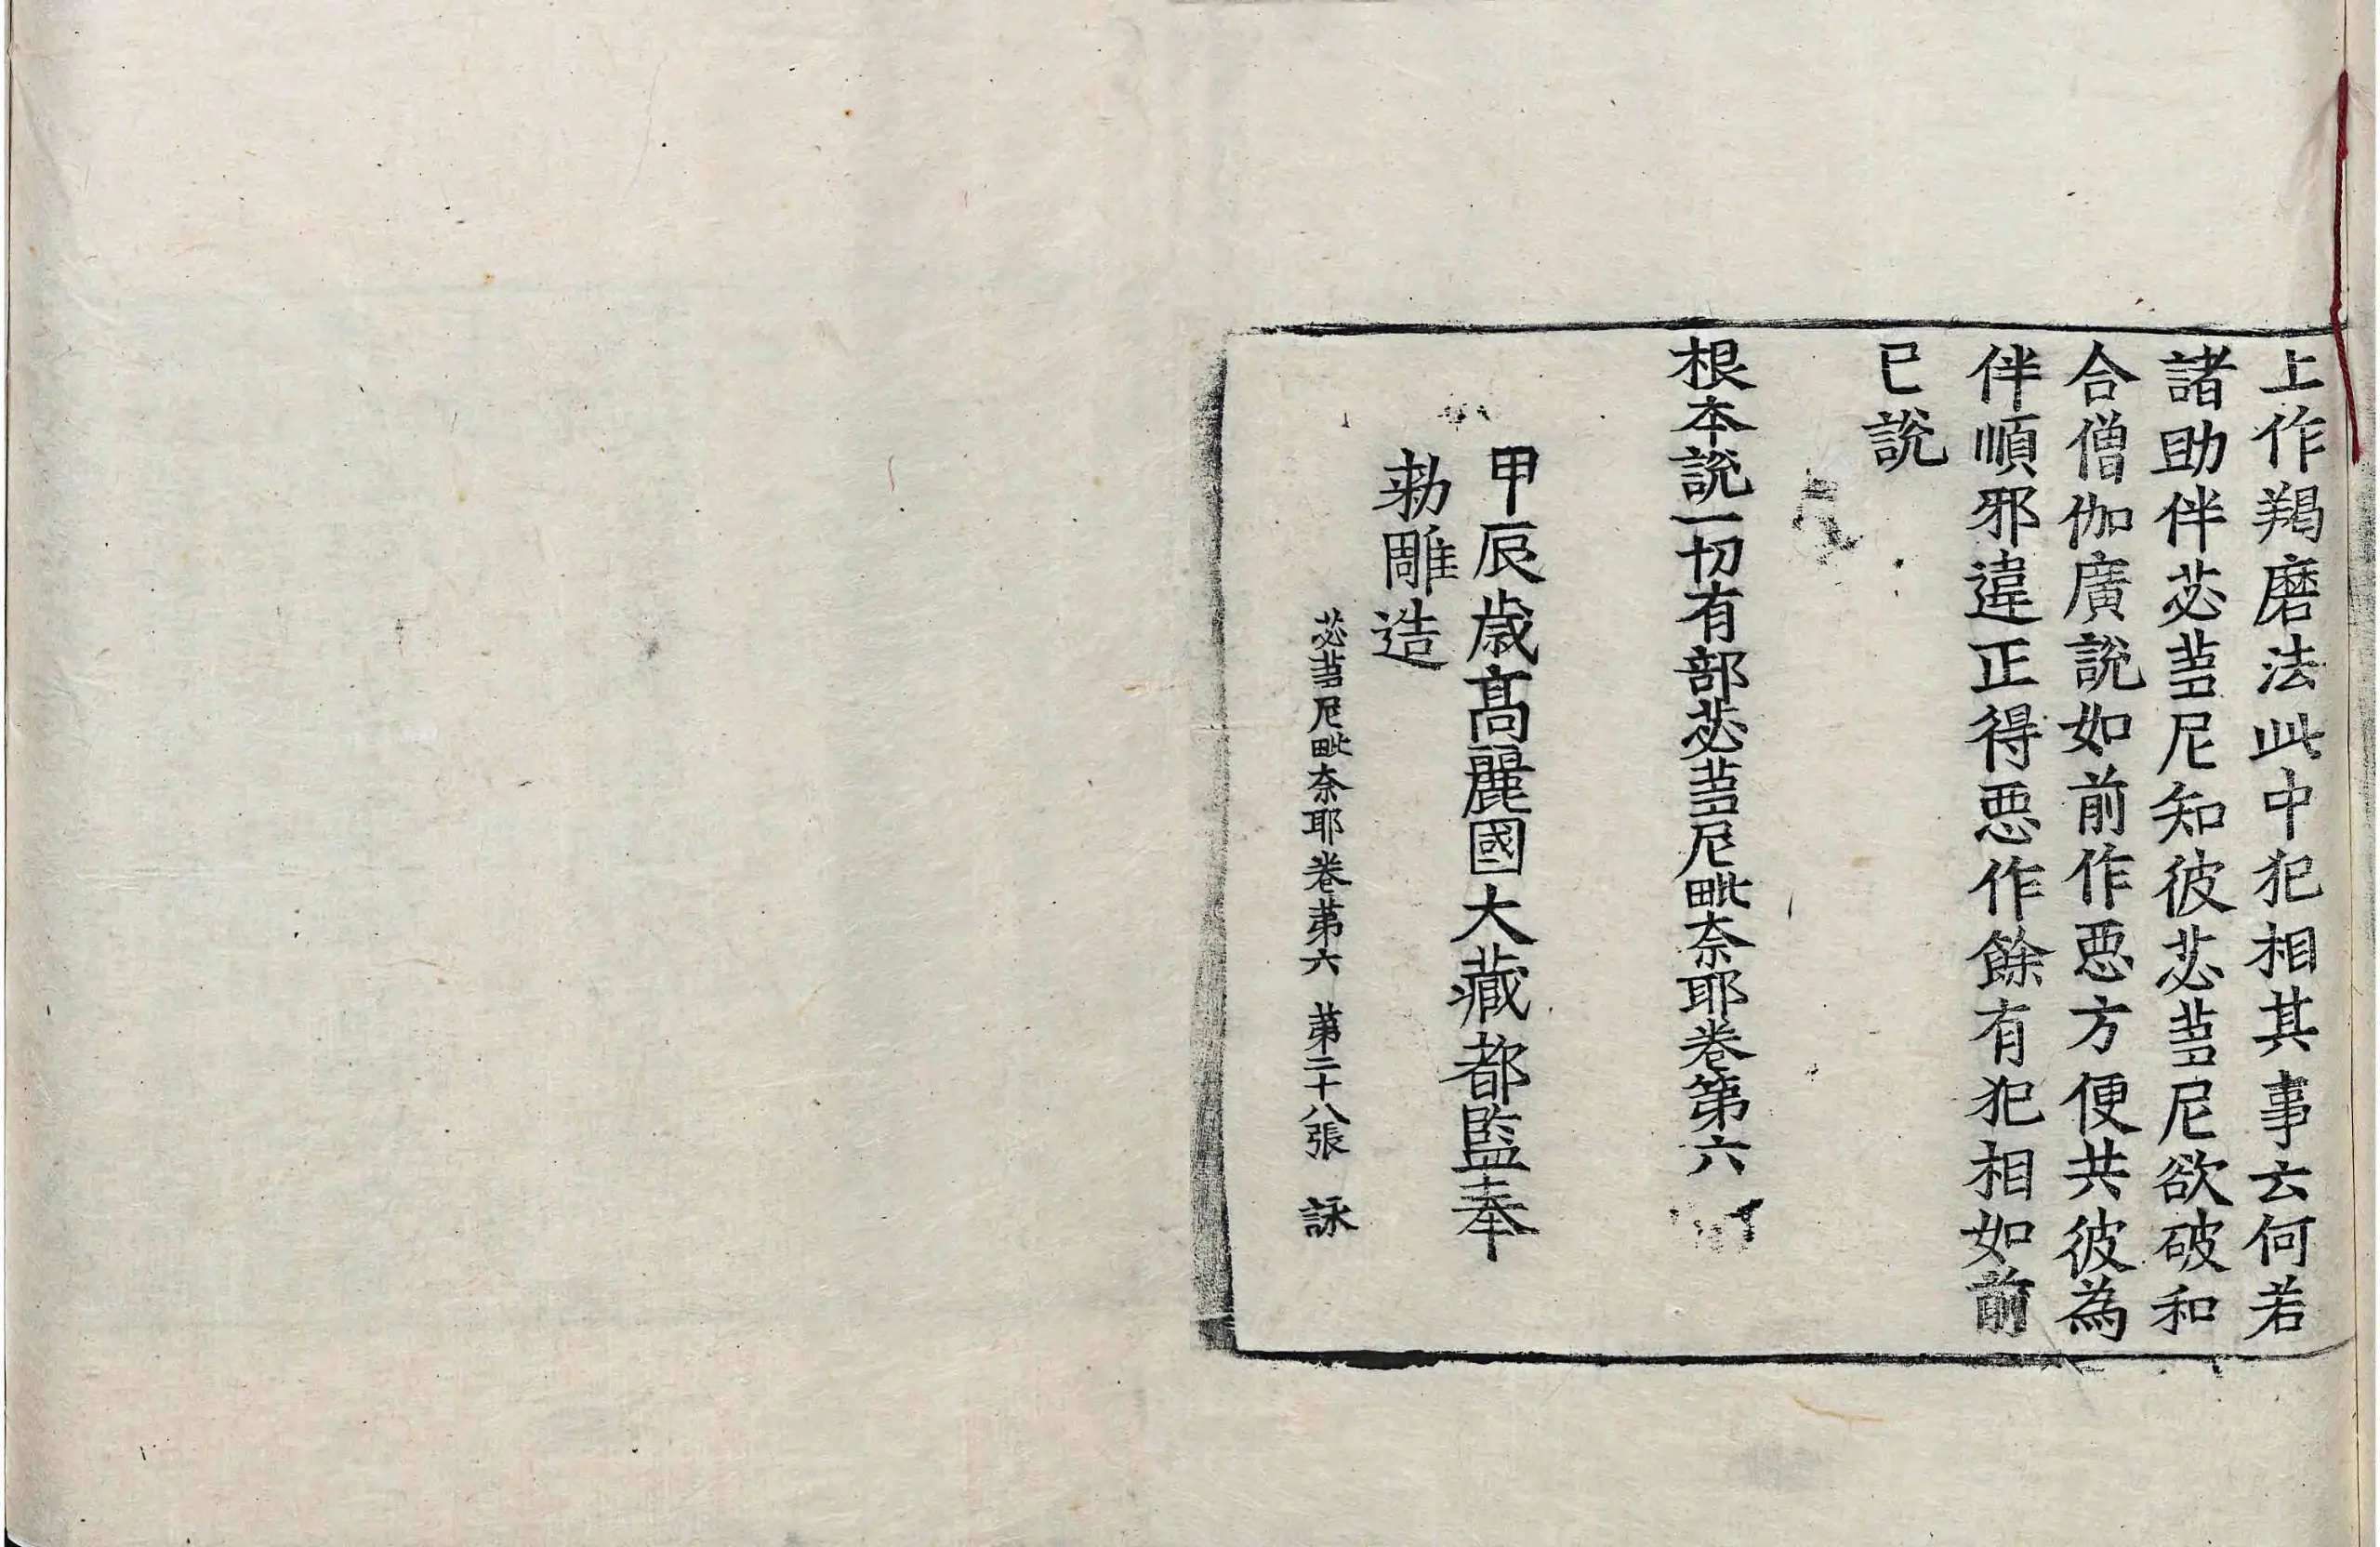 上作羯磨法此中犯相其事云何若
諸助伴苾蒭尼知彼苾蒭尼欲破和
合僧伽廣說如前作惡方便共彼為
伴順邪違正得惡作餘有犯相如前
已說
根本說一切有部苾蒭尼毗奈耶卷第六
甲辰歲高麗國大藏都監奉
勅雕造
苾蒭尼毗奈耶卷苐六 苐二十八張 詠